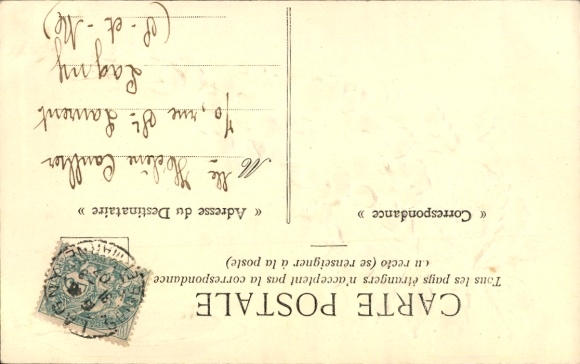 CARTE POSTALE
Tous les pays étrangers n'acceptent pas la correspondance
au recto (se renseigner à la poste)
« Correspondance »
« Adresse du Destinataire »
Mlle Hélène
70, rue St Laurent
Lagny
(S.-et-M)